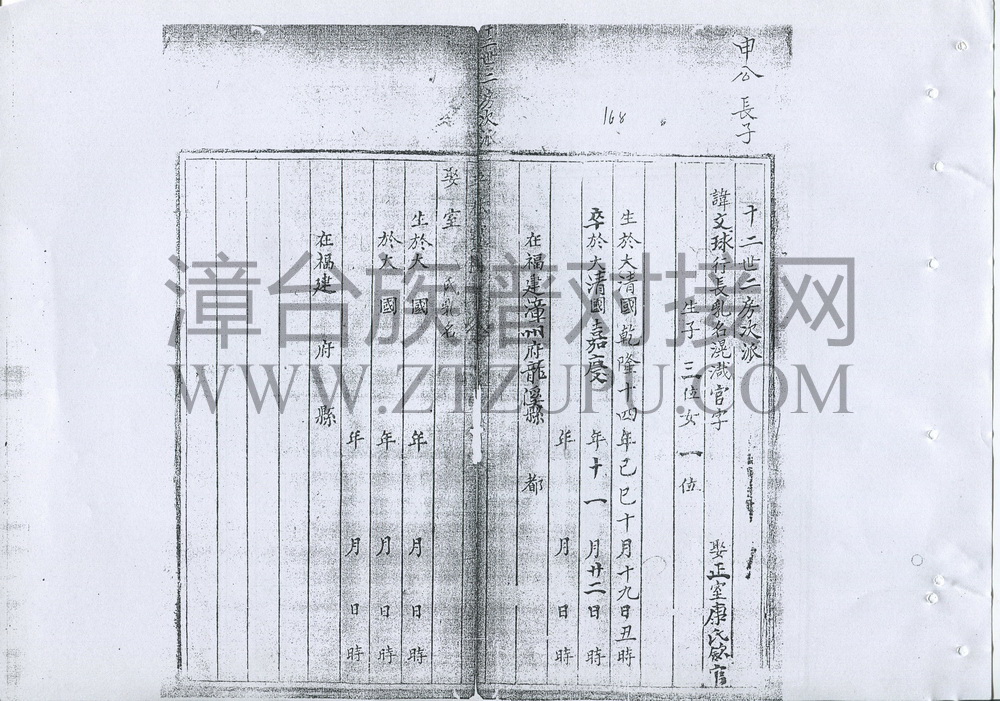 申公 長子
168
十二世二房次派
諱文球行長乳名混濈官字 娶正室康氏欲官
生子 三位女 一 位
生於大清國乾隆十四年己巳十月十九日丑時
卒於大清國嘉慶 年十一 月廿二日 時
年 月 日 時
在福建漳州府龍溪縣 都
十二世二房次派
娶 室 氏乳名
生於大 國 年 月 日 時
於大 國 年 月 日 時
年 月 日 時
在福建 府 縣
漳台族谱对接网
WWW.ZTZUPU.COM